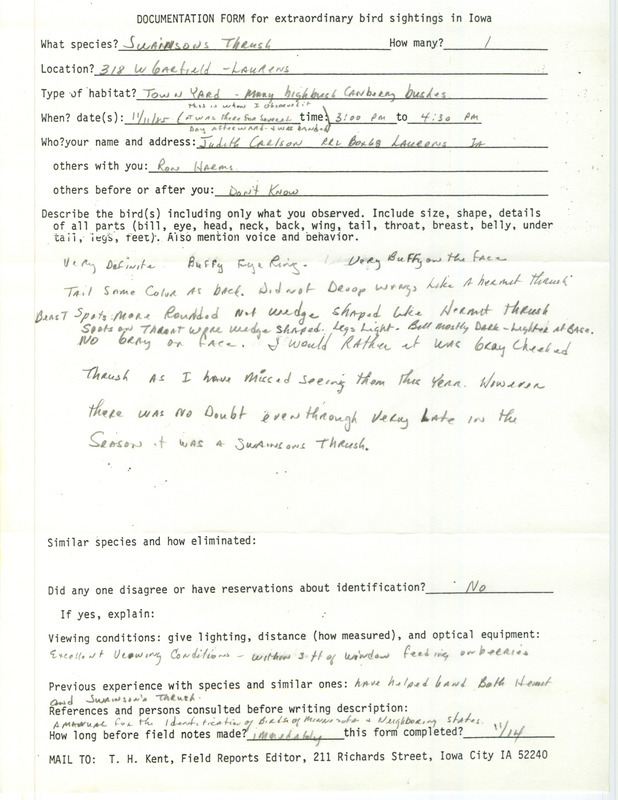 DOCUMENTATION FORM for extraordinary bird sightings in Iowa
What species? Swainsons Thrush How many? 1
Location? 318 W Garfield - Laurens
Type of habitat? Town Yard - Many highbush Canberry bushes
This is when I observed it
When? date(s): 11/11/85 (it was there for several time: 3:00 pm to 4:30 pm
Day afterward & was banded)
Who? your name and address: Judith Carlson RR1 Box68 Laurens Ia
others with you: Ron Harms
others before or after you: Don't Know
Describe the bird(s) including only what you observed. Include size, shape, details
of all parts (bill, eye, head, neck, back, wing, tail, throat, breast, belly, under
tail, legs, feet). Also mention voice and behavior.
Very Definite Buffy Eye Ring. Very Buffy on the face
Tail Same Color as back. Did not Droop wings Like A hermit thrush
Breast Spots more Rounded Not wedge shaped like Hermit thrush
Spots on Throat were wedge shaped. Legs Light. Bill mostly Dark - Lighter at Base.
No Gray on face. I would Rather it was Gray Cheeked
Thrush as I have missed seeing them this year. However
there was no Doubt even through very Late in the
Season it was a Swainsons Thrush.
Similar species and how eliminated:
Did any one disagree or have reservations about identification? No
If yes, explain:
Viewing conditions: give lighting, distance (how measured), and optical equipment:
Excellent Viewing Conditions - within 3 ft of window feeding on berries
Previous experience with species and similar ones: have helped band Both Hermit
and Swainson's Thrush.
References and persons consulted before writing description:
A manual for the Identification of Birds of Minnesota & Neighboring states.
How long before field notes made? immediately this form completed? 11/14
MAIL TO: T. H. Kent, Field Reports Editor, 211 Richards Street, Iowa City IA 52240